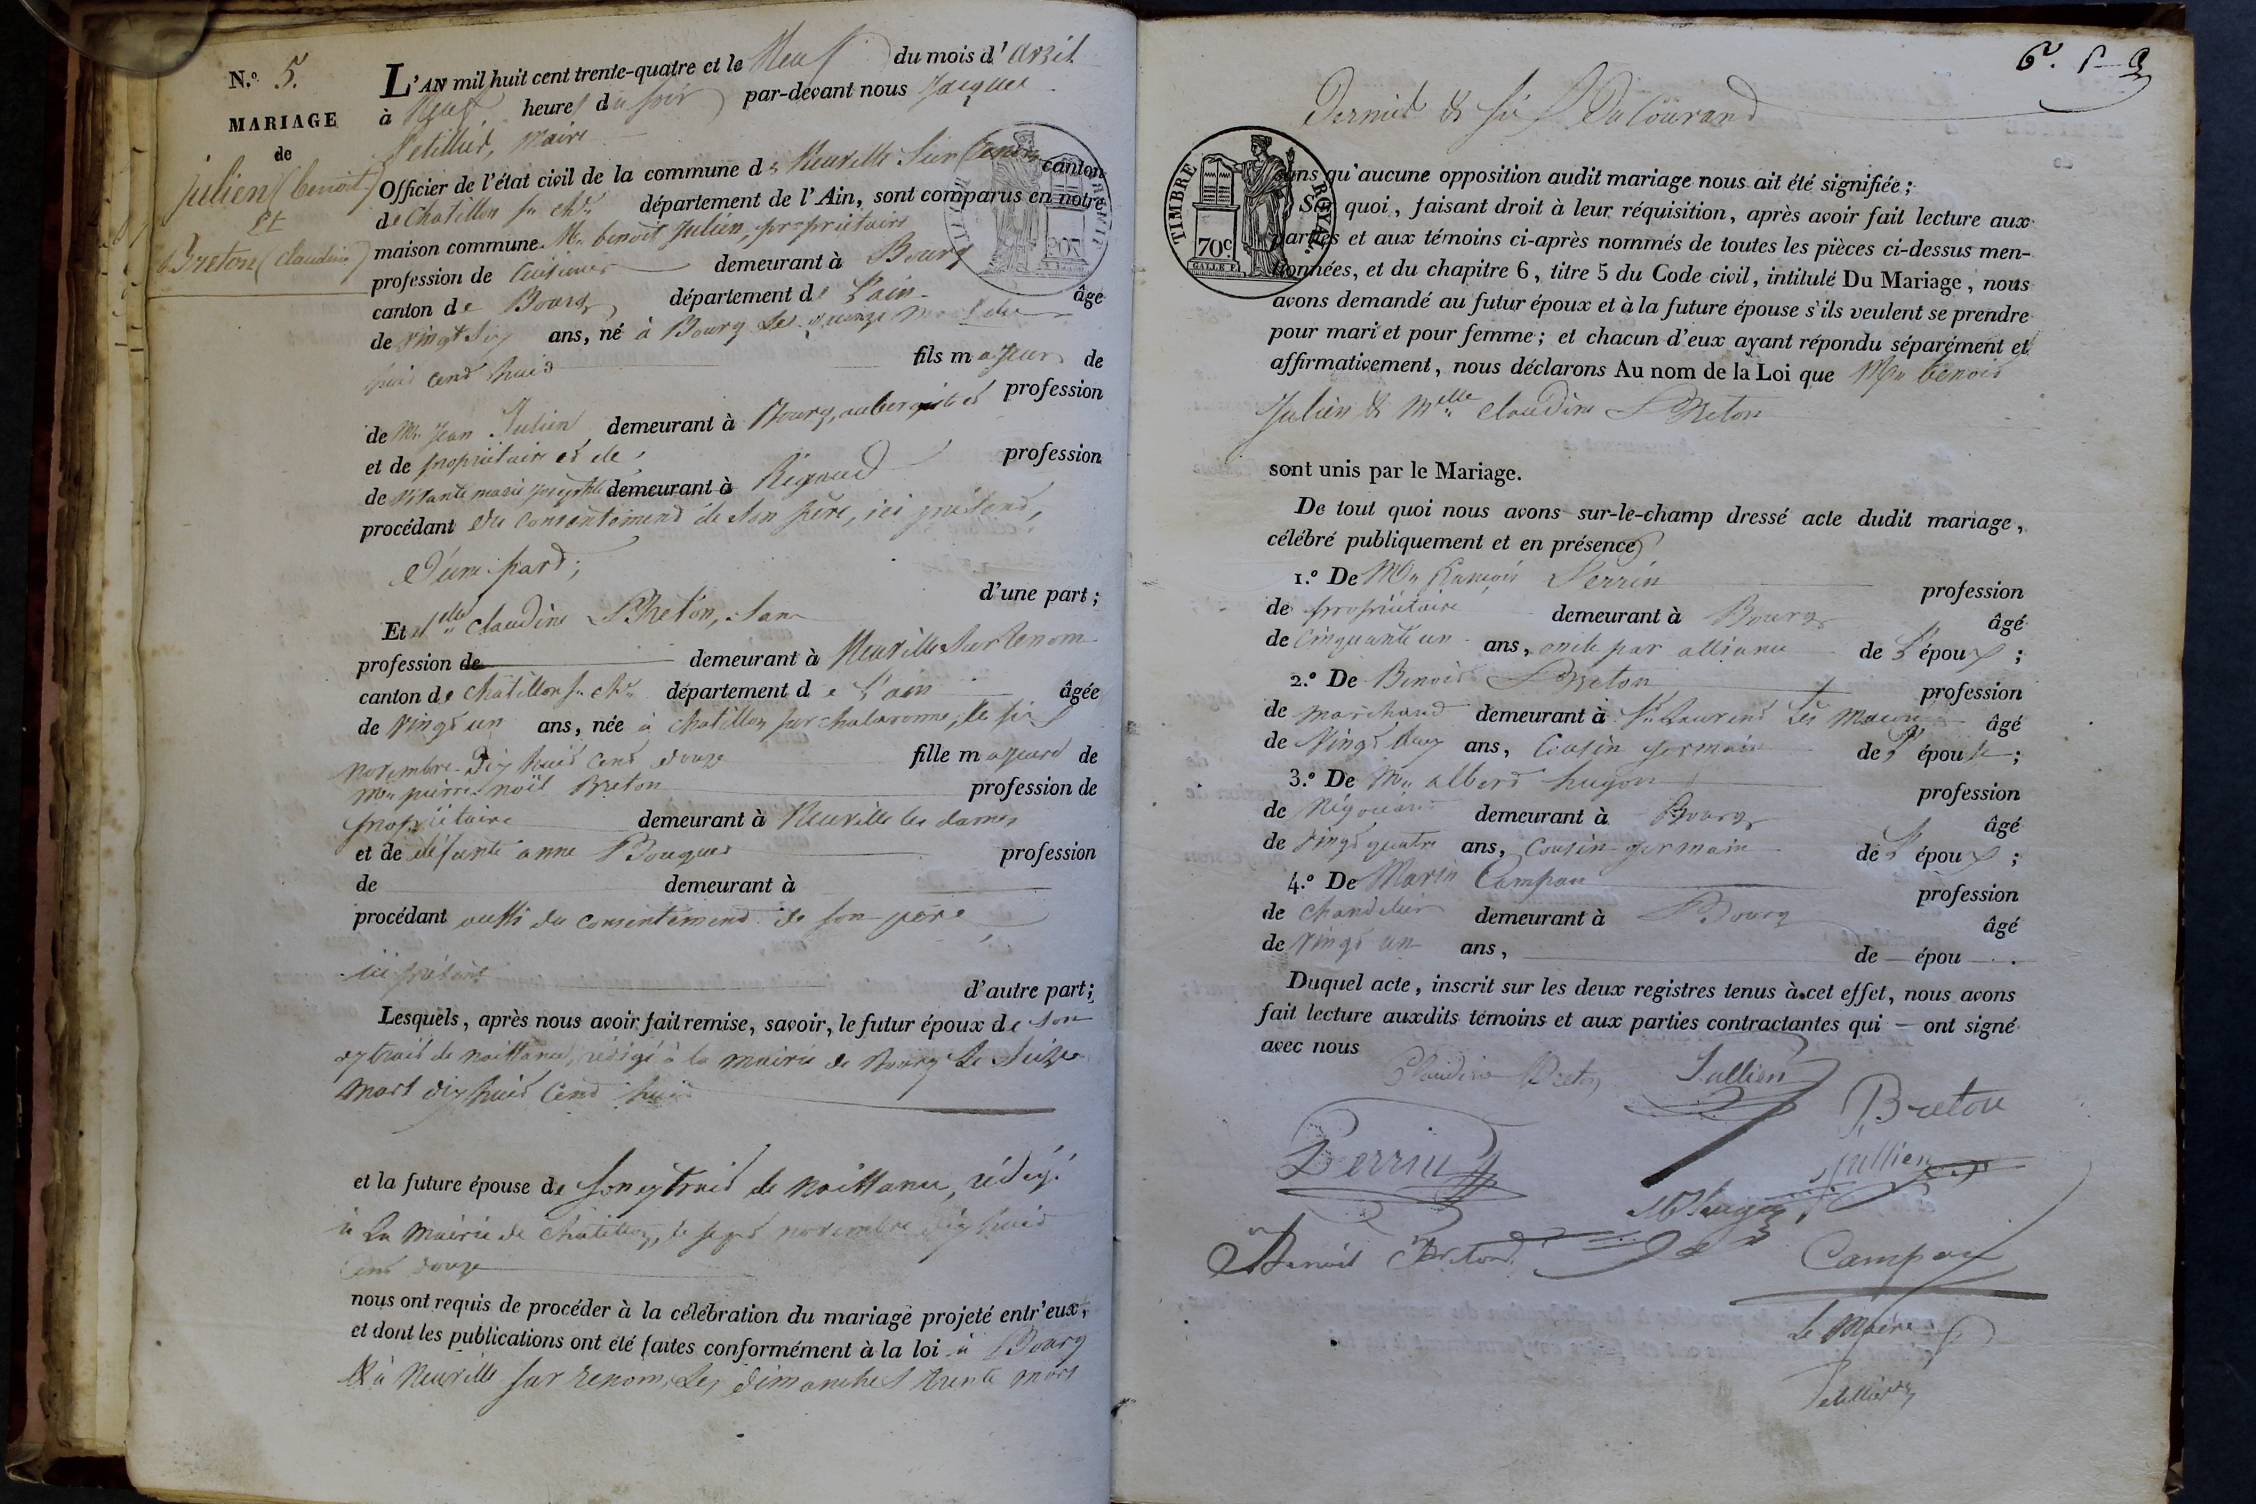 N.º 5.
MARIAGE
de
julien (benoit)
Et
Breton (claudine)
L'AN mil huit cent trente-quatre et le Neuf du mois d'avril
à Neuf heures du soir par-devant nous Jacques
Petillied, maire
Officier de l'état civil de la commune de Neuville sur Renom canton
de Chatillon sr chne département de l'Ain, sont comparus en notre
maison commune Mr benoit Julien, propriétaire
profession de Cuisinier demeurant à Bourg
canton de Bourg département de L'ain âge
de vingt six ans, né à Bourg Le quinze mars dix
huit cent huit fils majeur de
de Mr Jean Julien, demeurant à Bourg, aubergiste et profession
et de propriétaire et de profession
de vivante marie josephte demeurant à Rigaud
procédant du consentement de son père, ici présent,
d'une part;
d'une part;
Et dlle claudine Breton, sans
profession de demeurant à Neuville sur Renom
canton de Chatillon sr chne département de L'ain âgée
de vingt un ans, née à chatillon sur chalaronne, le six
novembre dix huit cent douze fille majeure de
Mr pierre noël Breton profession de
propriétaire demeurant à Neuville les dames
et de défunte anne Bouques profession
de demeurant à
procédant aussi du consentement de son père
ici présent
d'autre part;
Lesquels, après nous avoir fait remise, savoir, le futur époux de son
extrait de naissance, rédigé à la mairie de Bourg Le seize
mars dix huit cent huit
et la future épouse de son extrait de naissance, rédigé
à La mairie de Chatillon, le sept novembre dix huit
cent douze
nous ont requis de procéder à la célébration du mariage projeté entr'eux,
et dont les publications ont été faites conformément à la loi à Bourg
& à Neuville sur renom, Les dimanches trente mars
6e. f
Dernier & six Du Courant
TIMBRE ROYAL
70c
sans qu'aucune opposition audit mariage nous ait été signifiée;
Sur quoi, faisant droit à leur réquisition, après avoir fait lecture aux
parties et aux témoins ci-après nommés de toutes les pièces ci-dessus men-
tionnées, et du chapitre 6, titre 5 du Code civil, intitulé Du Mariage, nous
avons demandé au futur époux et à la future épouse s'ils veulent se prendre
pour mari et pour femme; et chacun d'eux ayant répondu séparément et
affirmativement, nous déclarons Au nom de la Loi que Mr benoit
Julien & Melle claudine Breton
sont unis par le Mariage.
De tout quoi nous avons sur-le-champ dressé acte dudit mariage,
célébré publiquement et en présence
1.º De Mr françois Perrin profession
de propriétaire demeurant à Bourg âgé
de Cinquante un ans, oncle par alliance de L'époux;
2.º De Benoit Breton profession
de marchand demeurant à St Laurent Les Macon âgé
de vingt deux ans, Cousin germain de L'épouse;
3.º De Mr albert hugon profession
de Négociant demeurant à Bourg âgé
de vingt quatre ans, Cousin germain de L'époux;
4.º De Marin Campan profession
de chandelier demeurant à Bourg âgé
de vingt un ans, de — épou
Duquel acte, inscrit sur les deux registres tenus à cet effet, nous avons
fait lecture auxdits témoins et aux parties contractantes qui — ont signé
avec nous
Claudine Breton Jullien
Breton
Perrin Jullien
Benoit Breton Campan
Le Maire